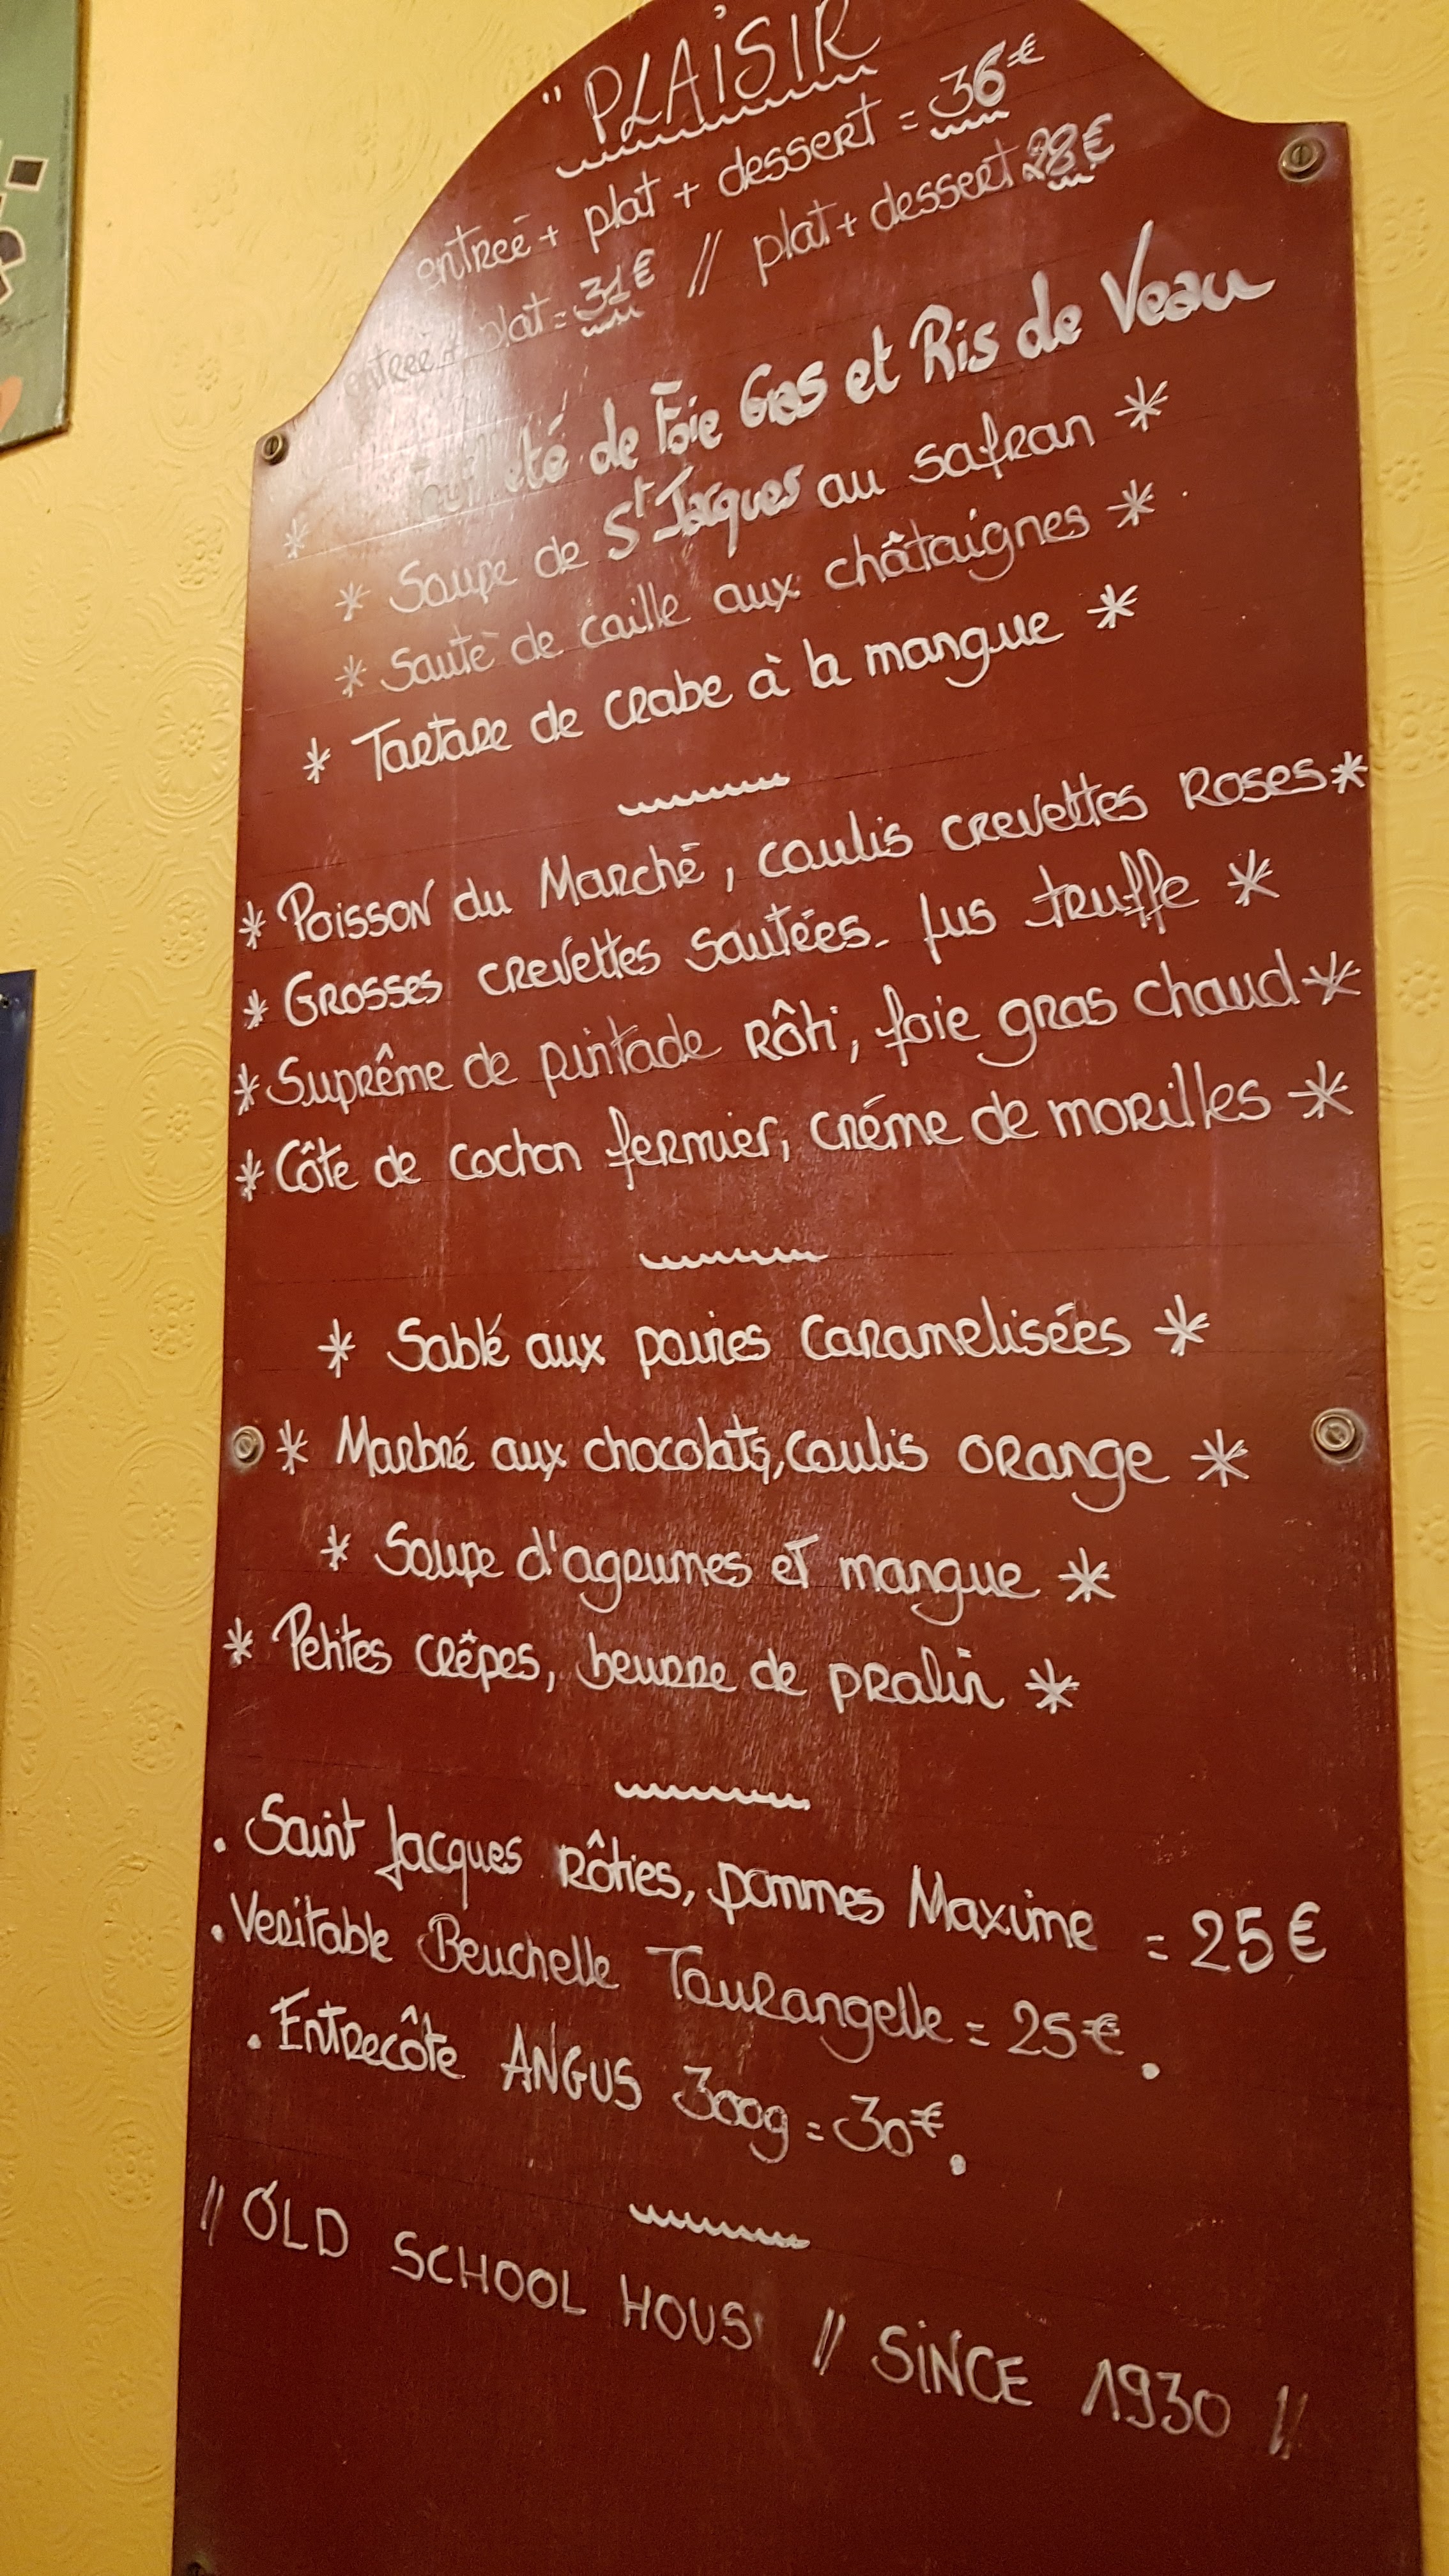 "PLAISIR
entreé + plat + dessert = 36€
entreé + plat = 31€ // plat + dessert 28€
* de Foie Gras et Ris de Veau
* Soupe de St Jacques au safran *
* Sauté de caille aux châtaignes *
* Tartare de crabe à la mangue *
* Poisson du Marché, coulis crevettes Roses *
* Grosses crevettes sautées - jus truffe *
* Suprême de pintade Rôti, foie gras chaud *
* Côte de cochon fermier, créme de morilles *
* Sablé aux poires Caramelisées *
* Marbré aux chocolats, coulis orange *
* Soupe d'agrumes et mangue *
* Petites crêpes, beurre de pralin *
. Saint Jacques Rôties, pommes Maxime = 25€
. Veritable Beuchelle Tourangelle = 25€ .
. Entrecôte ANGUS 300g = 30€ .
// OLD SCHOOL HOUS' // SINCE 1930 //